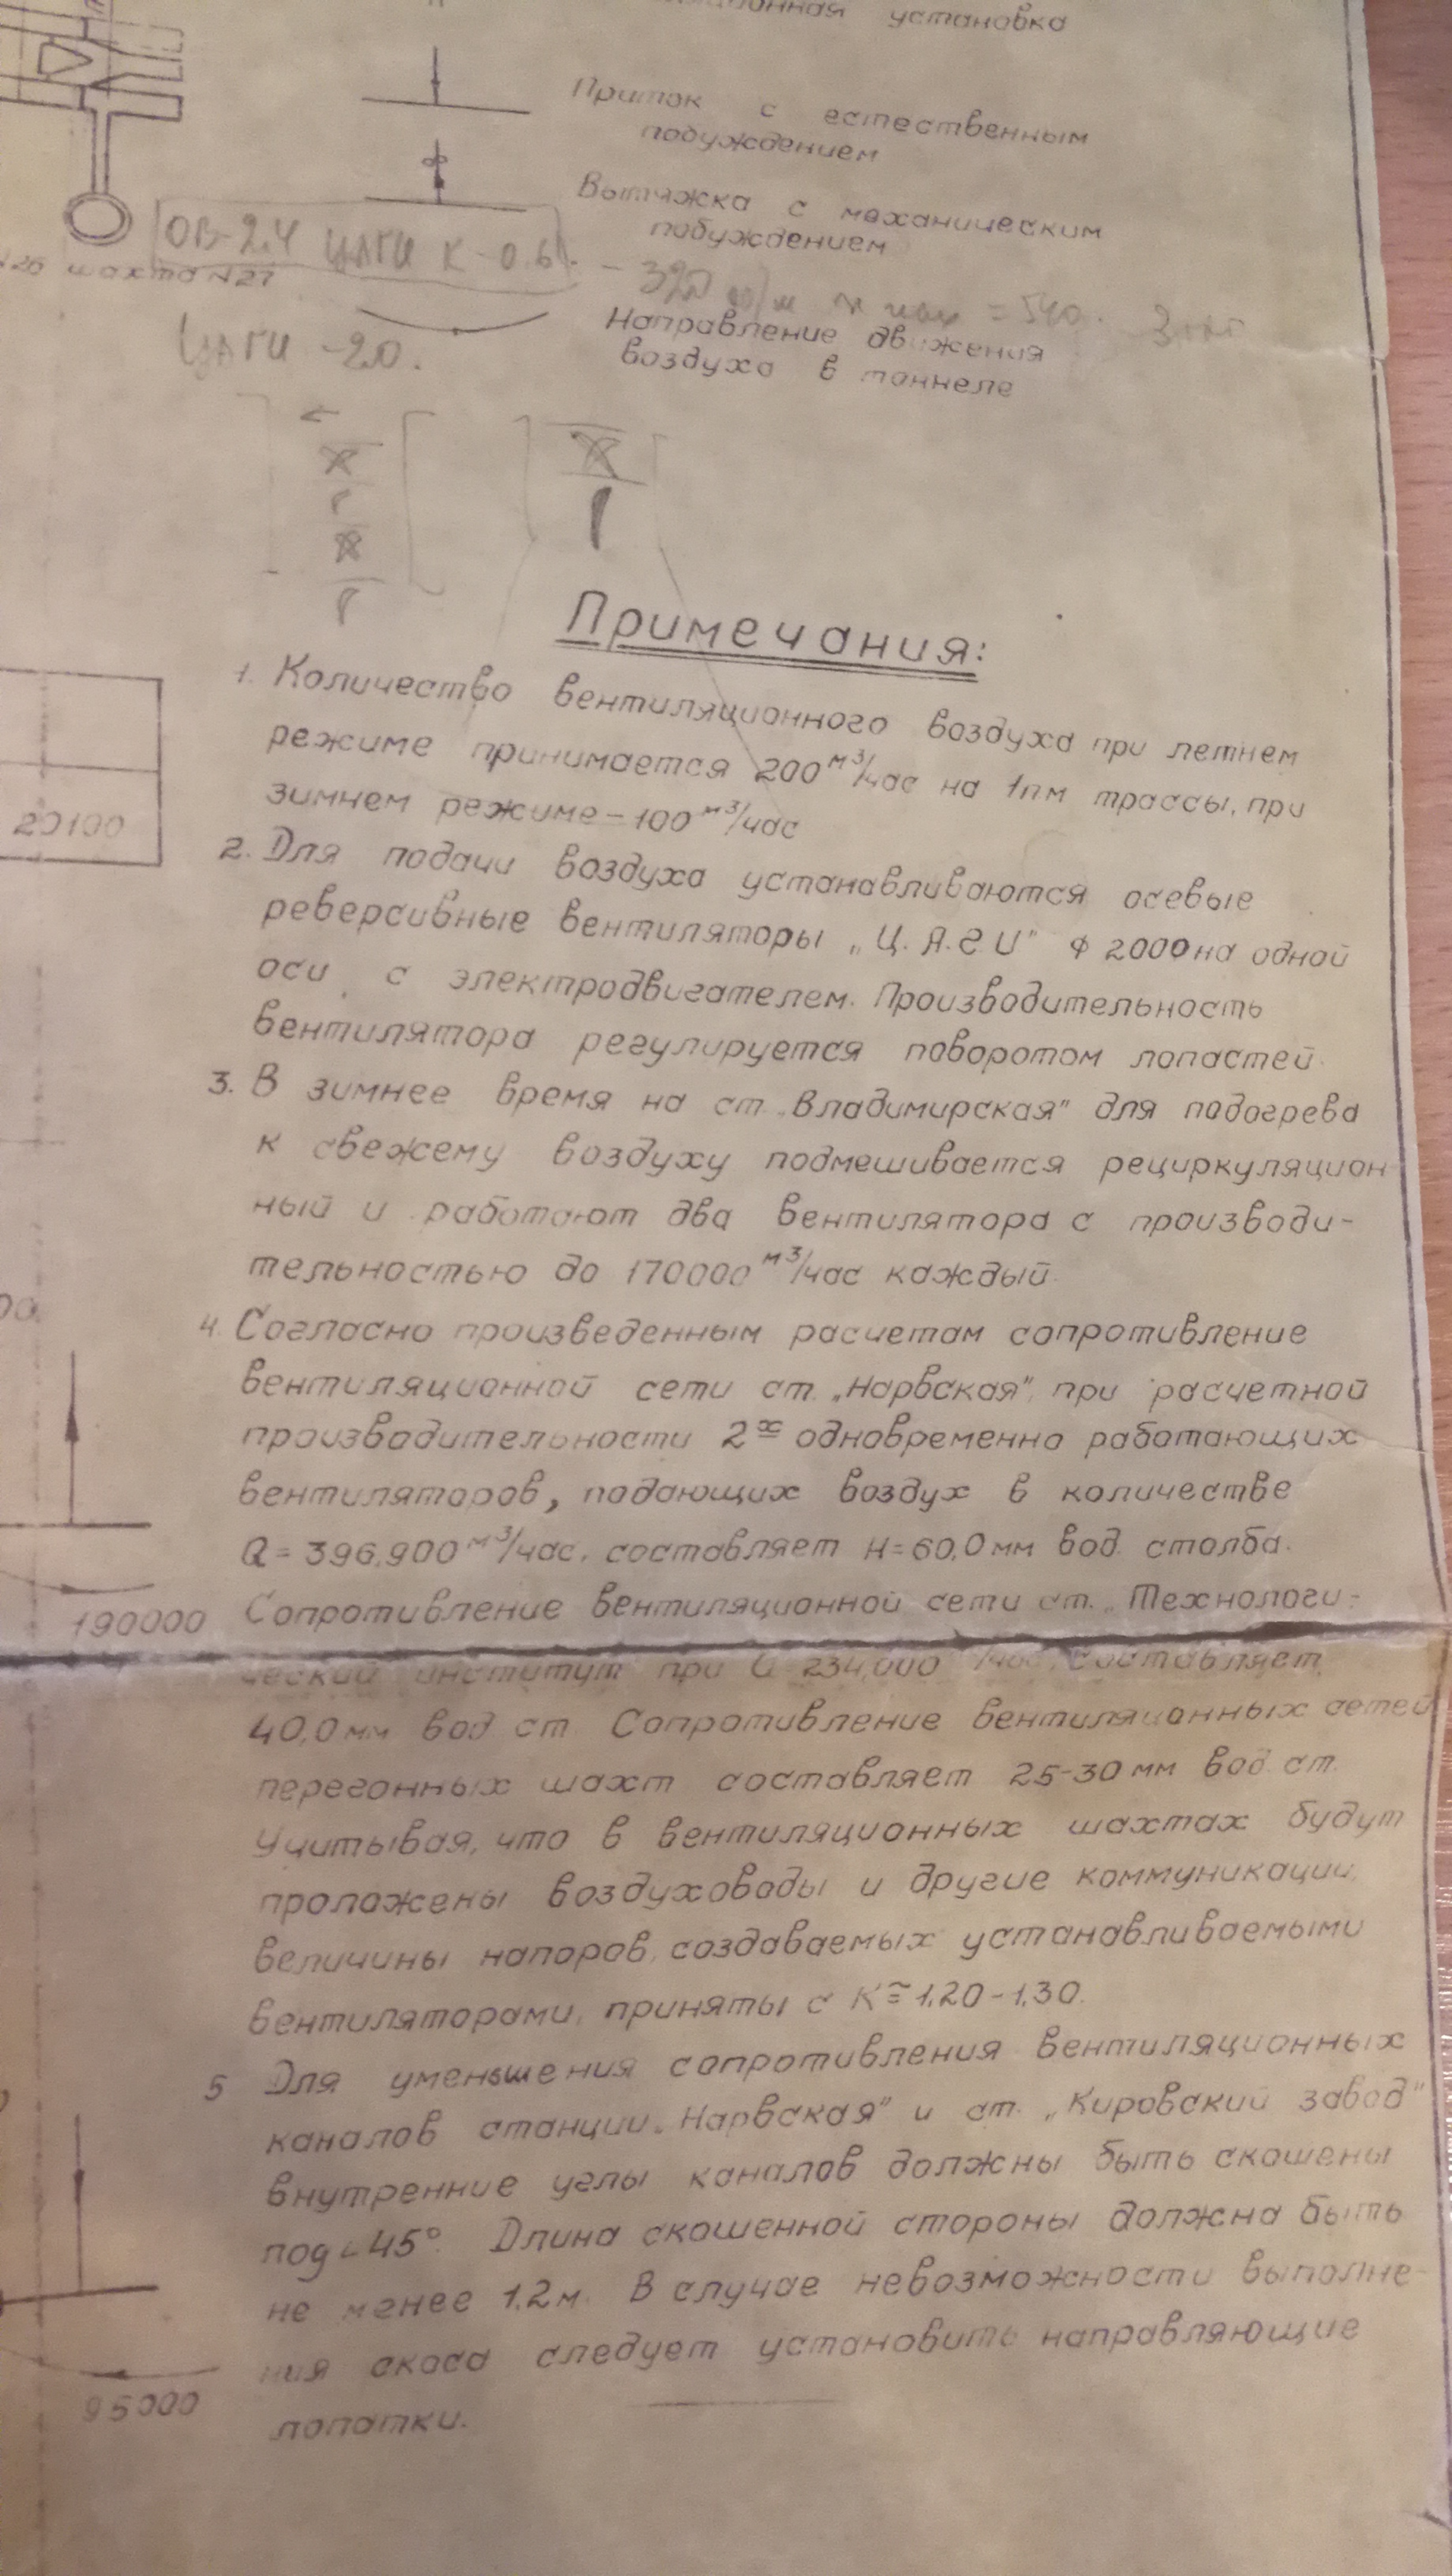 установка
Приток с естественным
побуждением
Вытяжка с механическим
побуждением
ОВ-2.4 ЦАГИ К-0.6
шахта №27
Направление движения
воздуха в тоннеле
ЦАГИ -20.
Примечания:
1. Количество вентиляционного воздуха при летнем
режиме принимается 200 м³/час на 1пм трассы, при
зимнем режиме - 100 м³/час
20100
2. Для подачи воздуха устанавливаются осевые
реверсивные вентиляторы „Ц.А.Г.И" ф 2000 на одной
оси с электродвигателем. Производительность
вентилятора регулируется поворотом лопастей.
3. В зимнее время на ст. „Владимирская" для подогрева
к свежему воздуху подмешивается рециркуляцион
ный и работают два вентилятора с производи-
тельностью до 170000 м³/час каждый.
4. Согласно произведенным расчетам сопротивление
вентиляционной сети ст. „Нарвская", при расчетной
производительности 2х одновременно работающих
вентиляторов, подающих воздух в количестве
Q = 396.900 м³/час, составляет H = 60,0 мм вод. столба.
190000
Сопротивление вентиляционной сети ст. „Технологи-
ческий институт при Q 234,000 /час, составляет
40,0 мм вод. ст. Сопротивление вентиляционных сетей
перегонных шахт составляет 25-30 мм вод. ст.
Учитывая, что в вентиляционных шахтах будут
проложены воздуховоды и другие коммуникации,
величины напоров, создаваемых устанавливаемыми
вентиляторами, приняты с К ≅ 1,20 - 1,30.
5 Для уменьшения сопротивления вентиляционных
каналов станции „Нарвская" и ст. „Кировский завод"
внутренние углы каналов должны быть скошены
под ∠ 45°. Длина скошенной стороны должна быть
не менее 1,2 м. В случае невозможности выполне-
ния скоса следует установить направляющие
95000
лопатки.